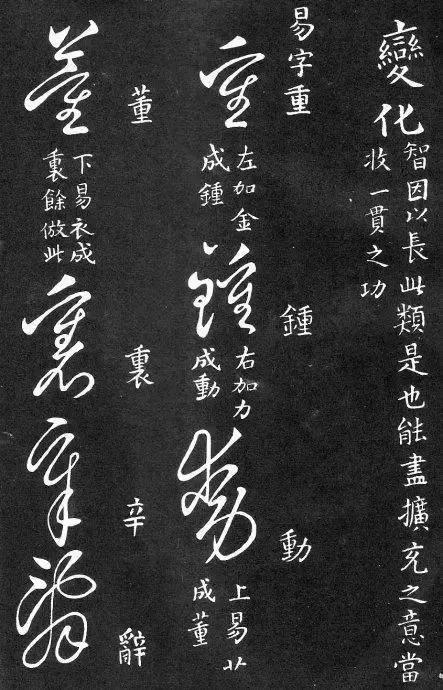 變化
智因以長此類是也能盡擴充之意當
收一貫之功
易字重
重
左加金
成鍾
鍾
鍾
右加力
成動
動
動
上易艹
成董
董
董
下易衣成
裏餘倣此
裏
裏
辛
辛
辭
辭